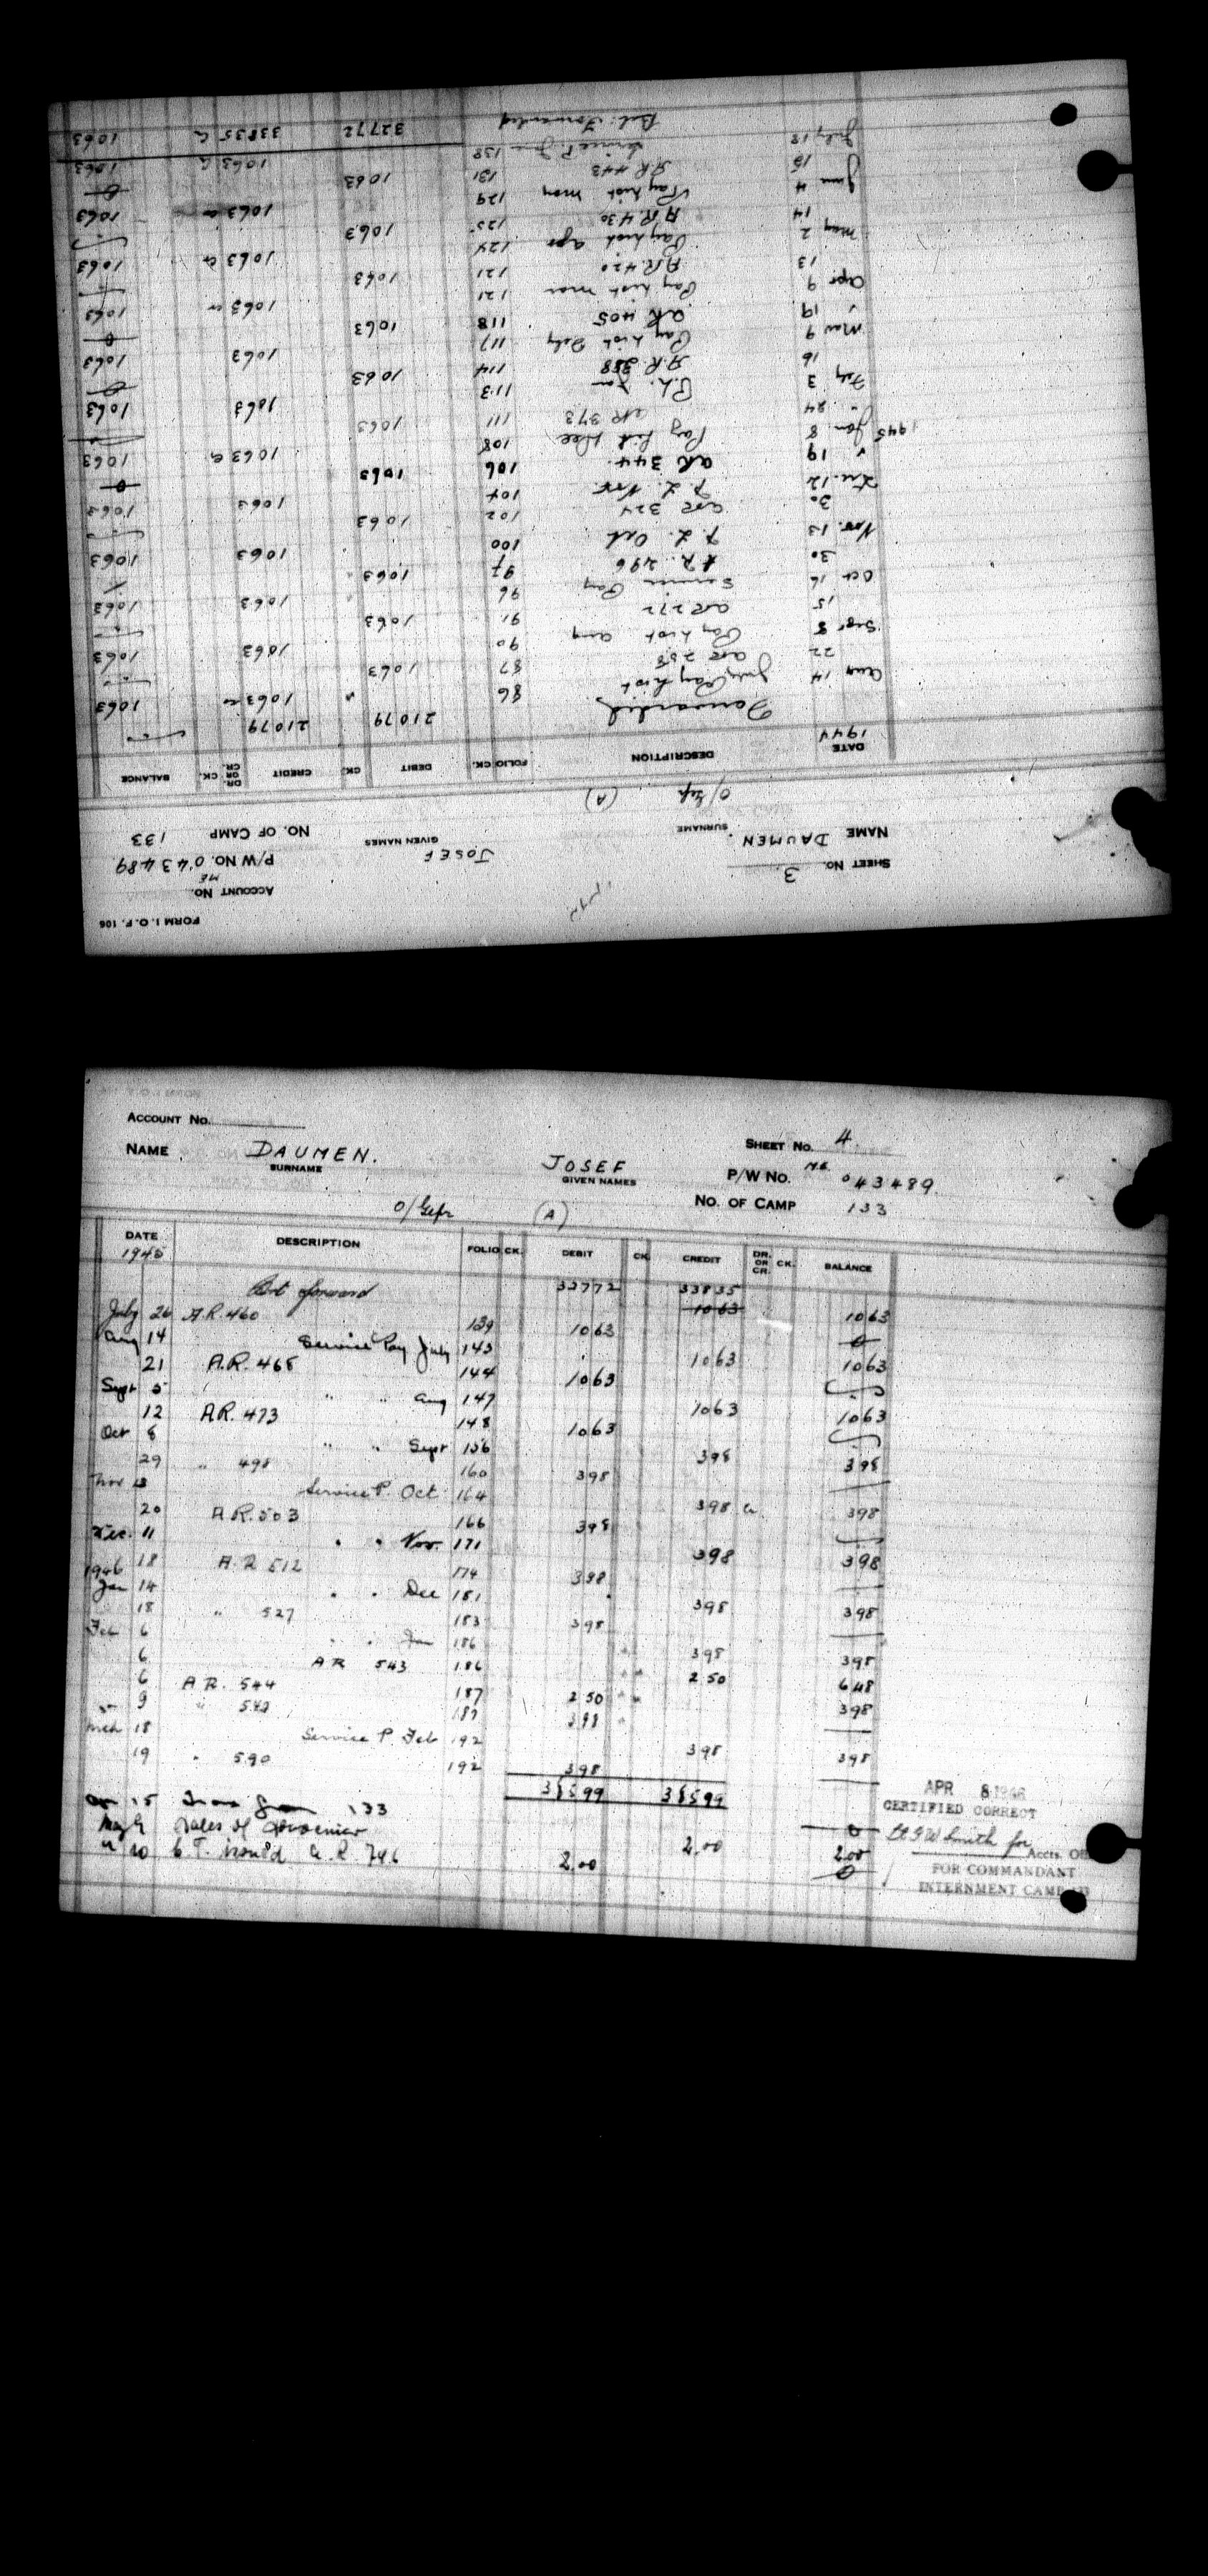 FORM I.O.F. 106
ACCOUNT No.
SHEET No. 3
ME
P/W NO. 043489
NAME DAUMEN JOSEF
SURNAME GIVEN NAMES
NO. OF CAMP 133
O/Gefr (A)
DATE DESCRIPTION FOLIO CK. DEBIT CK. CREDIT DR. OR CR. CK. BALANCE
1944
Forwarded 21079 21079
Aug 14 July Pay List 86 1063 1063
22 AR 258 87 1063
Sept 8 Pay List Aug 90 1063 1063
15 AR 272 91 1063
Oct 16 Service Pay 96 1063 1063
30 A.R. 296 97 1063
Nov. 13 P.L. Oct 100 1063 1063
30 AR 324 102 1063
Dec. 12 P.L. Nov. 104 1063 1063
" 19 AR 344 106 1063
1945 Jan 8 Pay List Dec 108 1063 1063
" 24 AR 373 111 1063
Feby 3 P.L. Jan 113 1063 1063
16 A.R. 388 114 1063
Mar 9 Pay List Feby 117 1063 1063
" 19 AR 405 118 1063
Apr 9 Pay List Mar 121 1063 1063
13 A.R. 420 121 1063
May 2 Pay List Apr 124 1063 1063
14 A.R. 430 125 1063
June 4 Pay List May 129 1063 1063
15 A.R. 443 131 1063
July 18 Service P. June 138 1063 1063
Bal. Forwarded 32772 33835 1063
ACCOUNT No.
SHEET No. 4
NAME DAUMEN. JOSEF
SURNAME GIVEN NAMES
P/W No. M.E. 043489
O/Gefr (A)
No. OF CAMP 133
DATE DESCRIPTION FOLIO CK. DEBIT CK. CREDIT DR. OR CR. CK. BALANCE
1945
Bal. forward 32772 33835
1063 1063
July 26 A.R. 460 139 1063 0
Aug 14 Service Pay July 143 1063 1063
21 A.R. 468 144 1063
Sept 5 " " Aug 147 1063 1063
12 A.R. 473 148 1063
Oct 8 " " Sept 156 398 398
29 " 498 160 398
Nov 13 Service P. Oct 164 398 398
20 A.R. 503 166 398
Dec. 11 " " Nov. 171 398 398
18 A.R 512 174 398
1946
Jan 14 " " Dec 181 398 398
18 " 527 183 398
Feb 6 " " Jan 186 398 398
6 A R 543 186 2 50 648
6 A R. 544 187 2 50 398
9 " 187 398
Mch 18 Service P. Feb 192 398 398
19 " 590 192 398
38599 38599
15 133 0
May 9 Sales of 2.00 2.00
" 20 A.R. 746 2.00 0
APR 8 1946
CERTIFIED CORRECT
Smith for
Accts. Off
FOR COMMANDANT
INTERNMENT CAMP 133